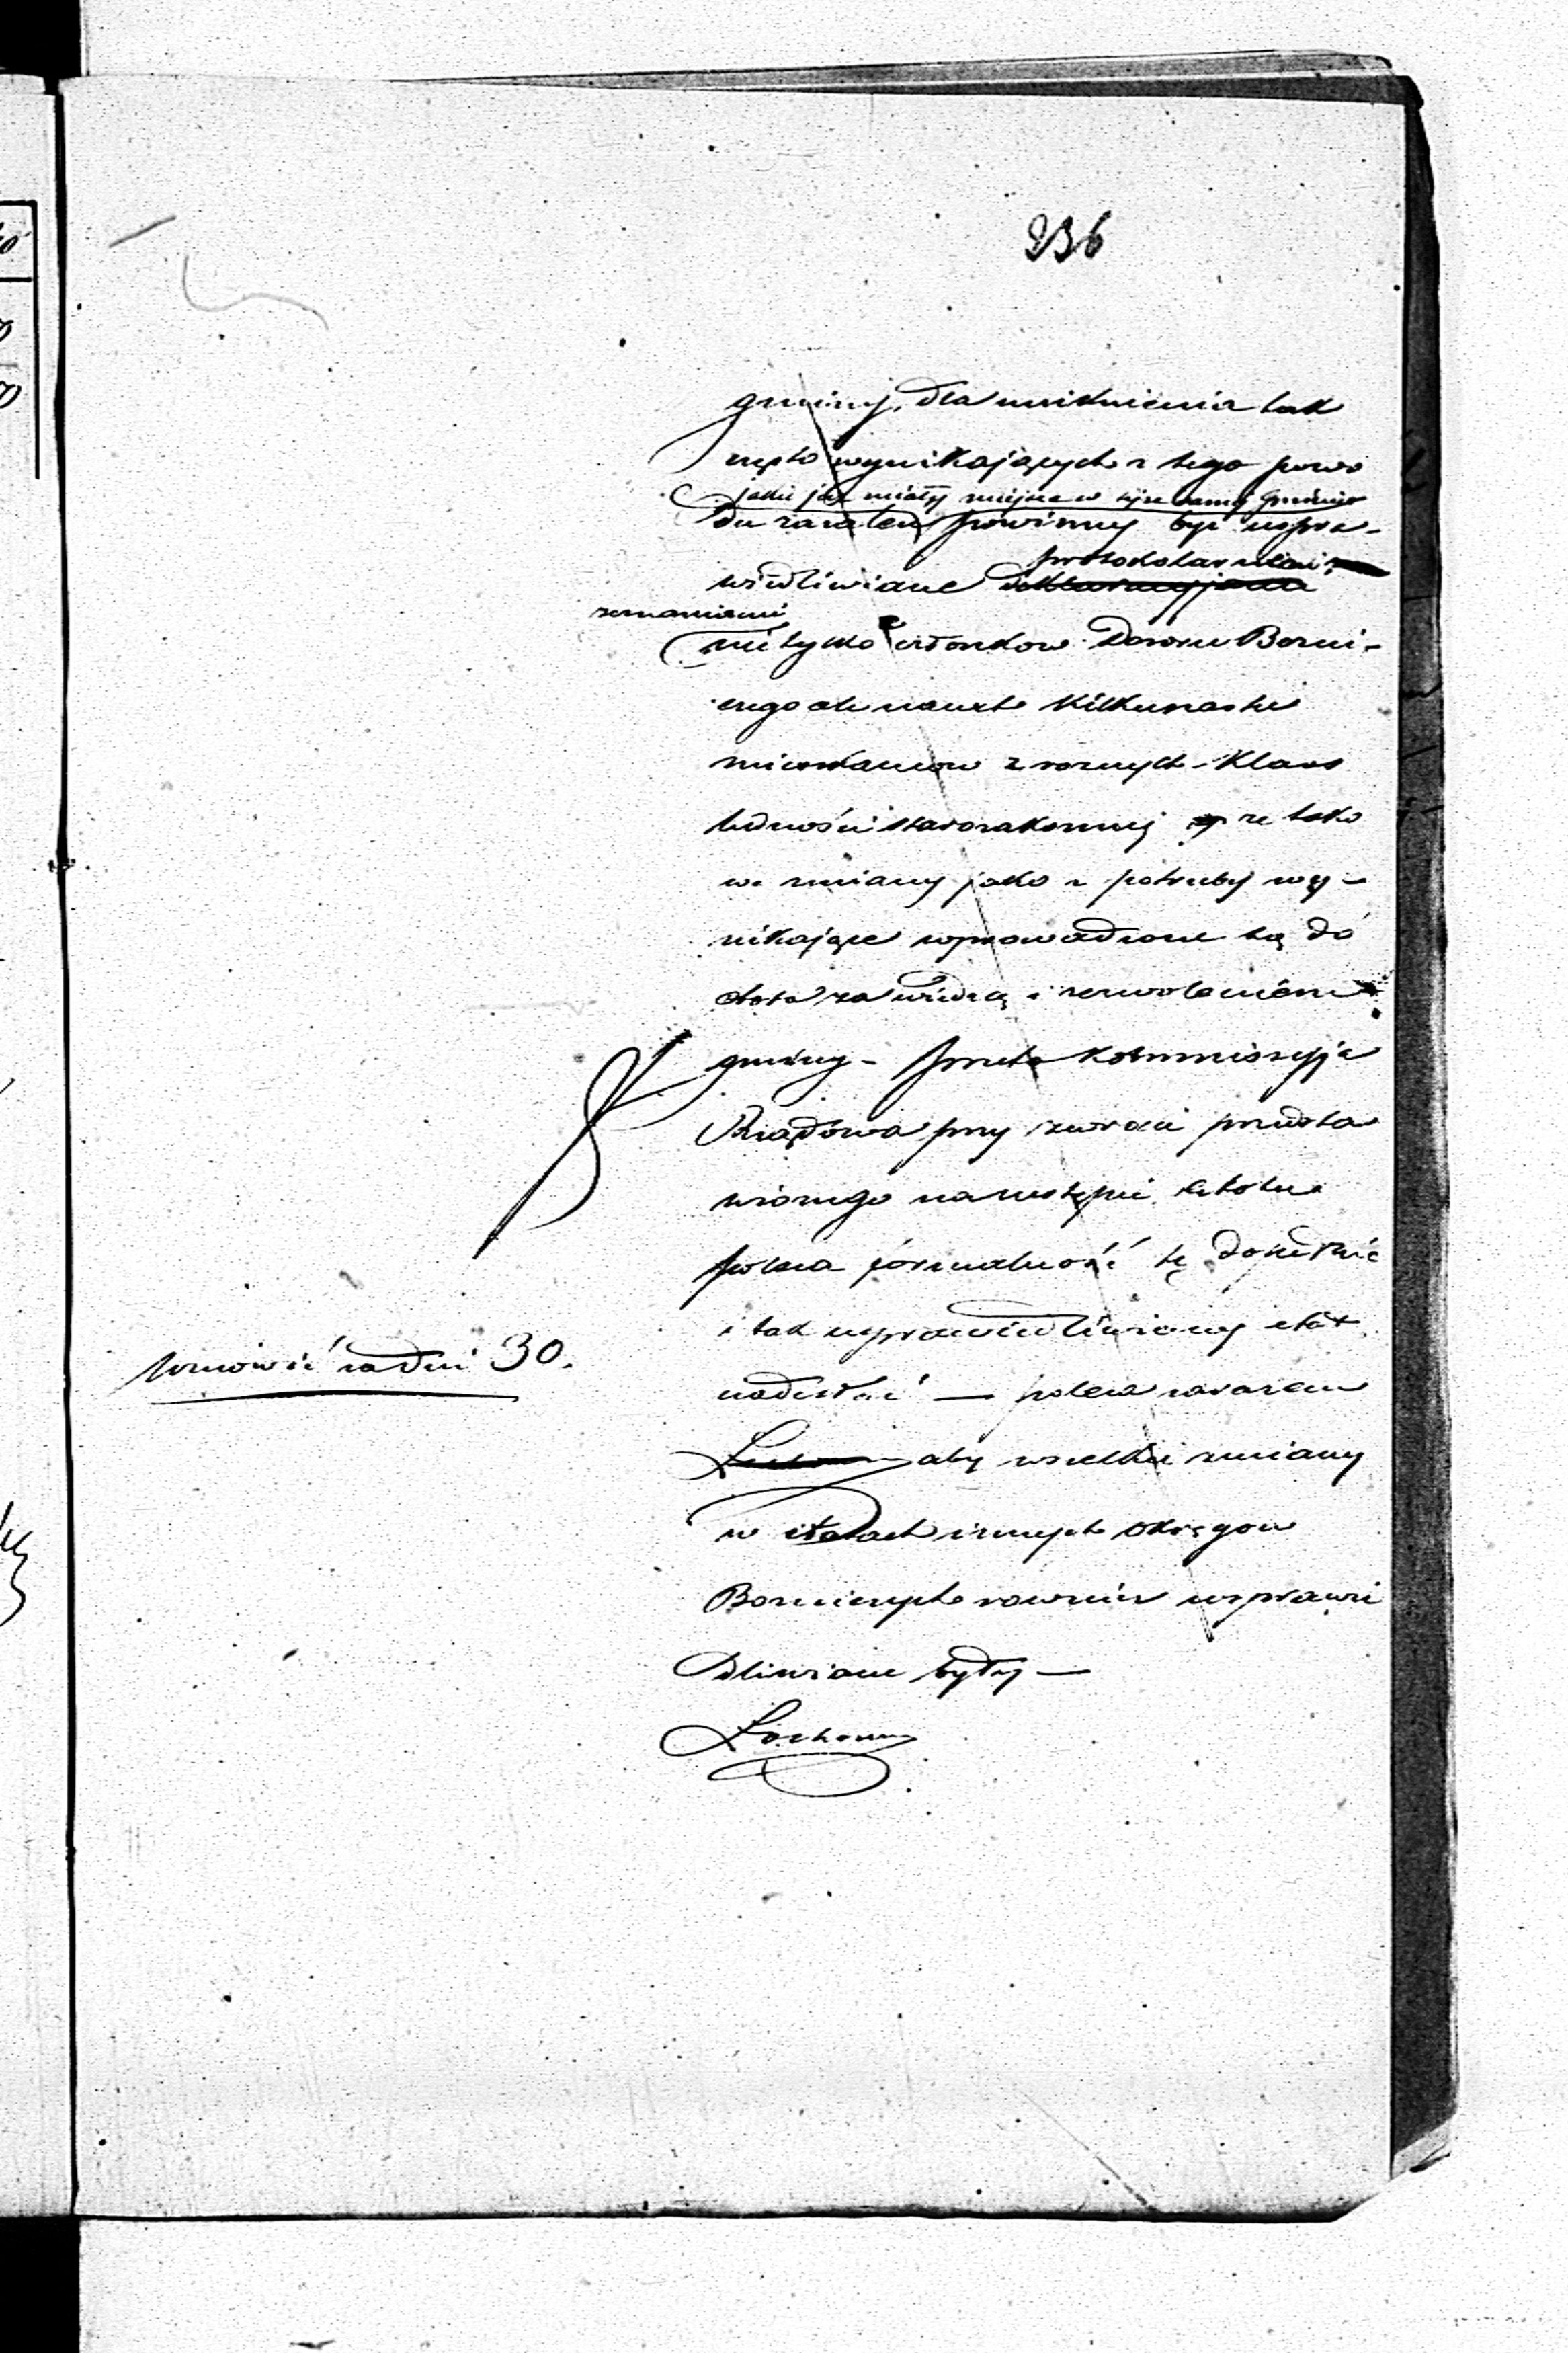 336
gminy, dla uniknienia tak
częsta wynikających z tego powo
jakie już miały miejsce w tejże samej gminie
du zażaleń powinny być uspra-
protokolarnemi
wiedliwiane
zeznaniami
nie tylko członków Dozoru Bożni-
czego ale nawet kilkunastu
mieszkańców z różnych klass
ludności starozakonnej że tako
we zmiany jako z potrzeby wy-
nikające wprowadzone są do
etatu za wiedzą i zezwoleniem
gminy - przeto Kommissyja
Rządowa przy zwrocie przedsta
wionego na wstępie etatu
poleca formalność tę dopełnić
i tak usprawiedliwiony etat
wznowić za dni 30.
nadesłać — poleca zarazem
aby wszelkie zmiany
w etatach innych okręgów
Bożniczych również usprawie
dliwiane były —